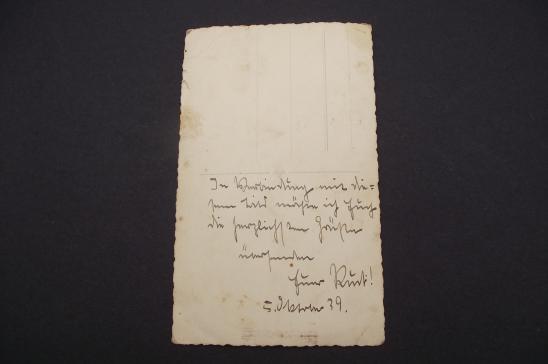 In Verbindung mit die=
sem Bild möchte ich Euch
die herzlichsten Grüße
übersenden
Euer Kurt!
5. Oktober 39.